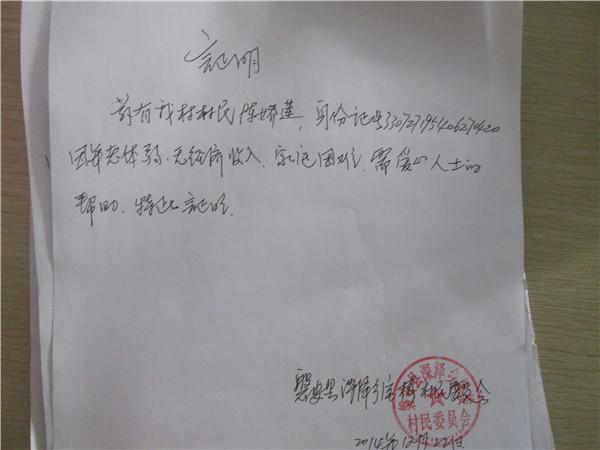 证明
兹有我村村民陈娇莲，身份证号330727195406270420
因年老体弱、无经济收入、家庭困难、需爱心人士的
帮助、特此证明。
磐安县深泽
村民委员会
2014年12月22日